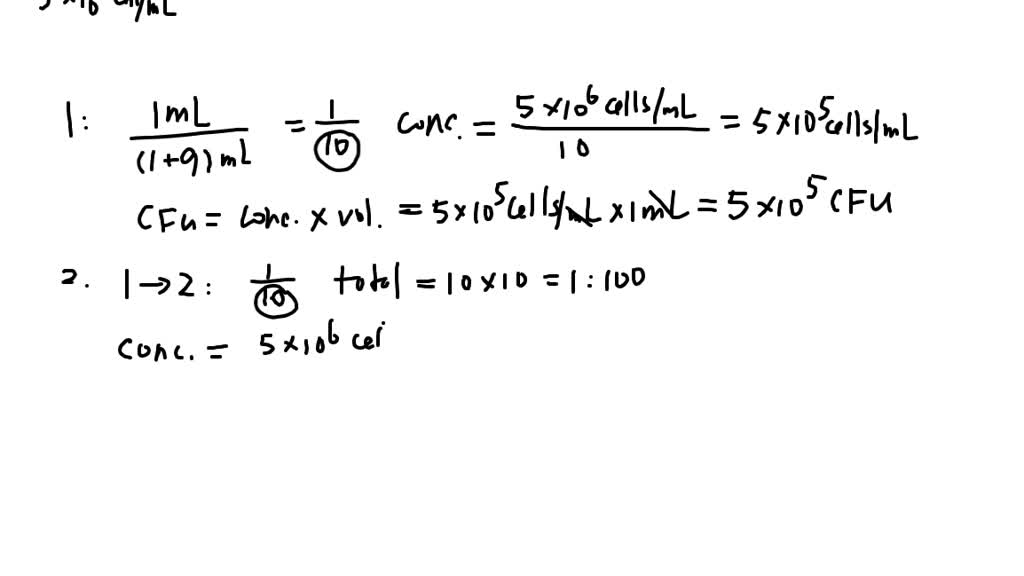 5 × 10⁶ cells/mL
1: 1mL / (1+9) mL = 1/10 conc. = 5 × 10⁶ cells/mL / 10 = 5 × 10⁵ cells/mL
CFU = conc. × vol. = 5 × 10⁵ cells/mL × 1mL = 5 × 10⁵ CFU
2. 1 → 2: 1/10 total = 10 × 10 = 1:100
conc. = 5 × 10⁶ cel